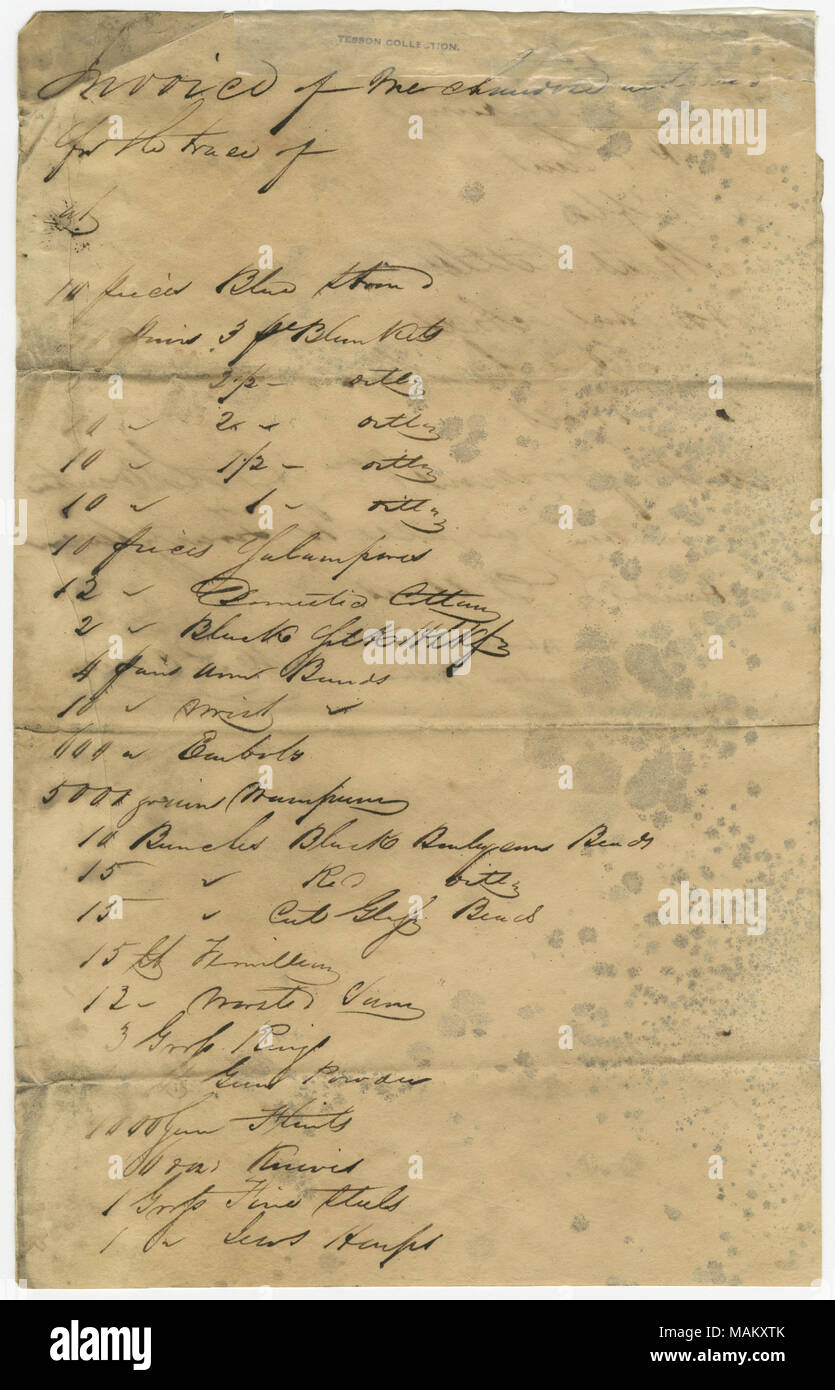 TESSON COLLECTION.
Invoice of Merchandise
for the trade of
10 pieces Blue Stroud
pairs 3 pt Blankets
2 1/2 - ditto
10 " 2 " ditto
10 " 1 1/2 - ditto
10 " 1 - ditto
10 pieces Salampores
12 " Domestic Cotton
2 " Black Silk Hdkfs
4 pairs Arm Bands
10 " Wrist "
600 " Earbobs
5000 grains Wampum
10 Bunches Black Barlycorn Beads
15 " Red ditto
15 " Cut Glass Beads
15 lb Vermillion
12 " Worsted Yarn
3 Gross Rings
Gun Powder
1000 Gun Flints
Knives
1 Gross Fire Steels
1 " Jews Harps
alamy
Image ID: MAKXTK
www.alamy.com